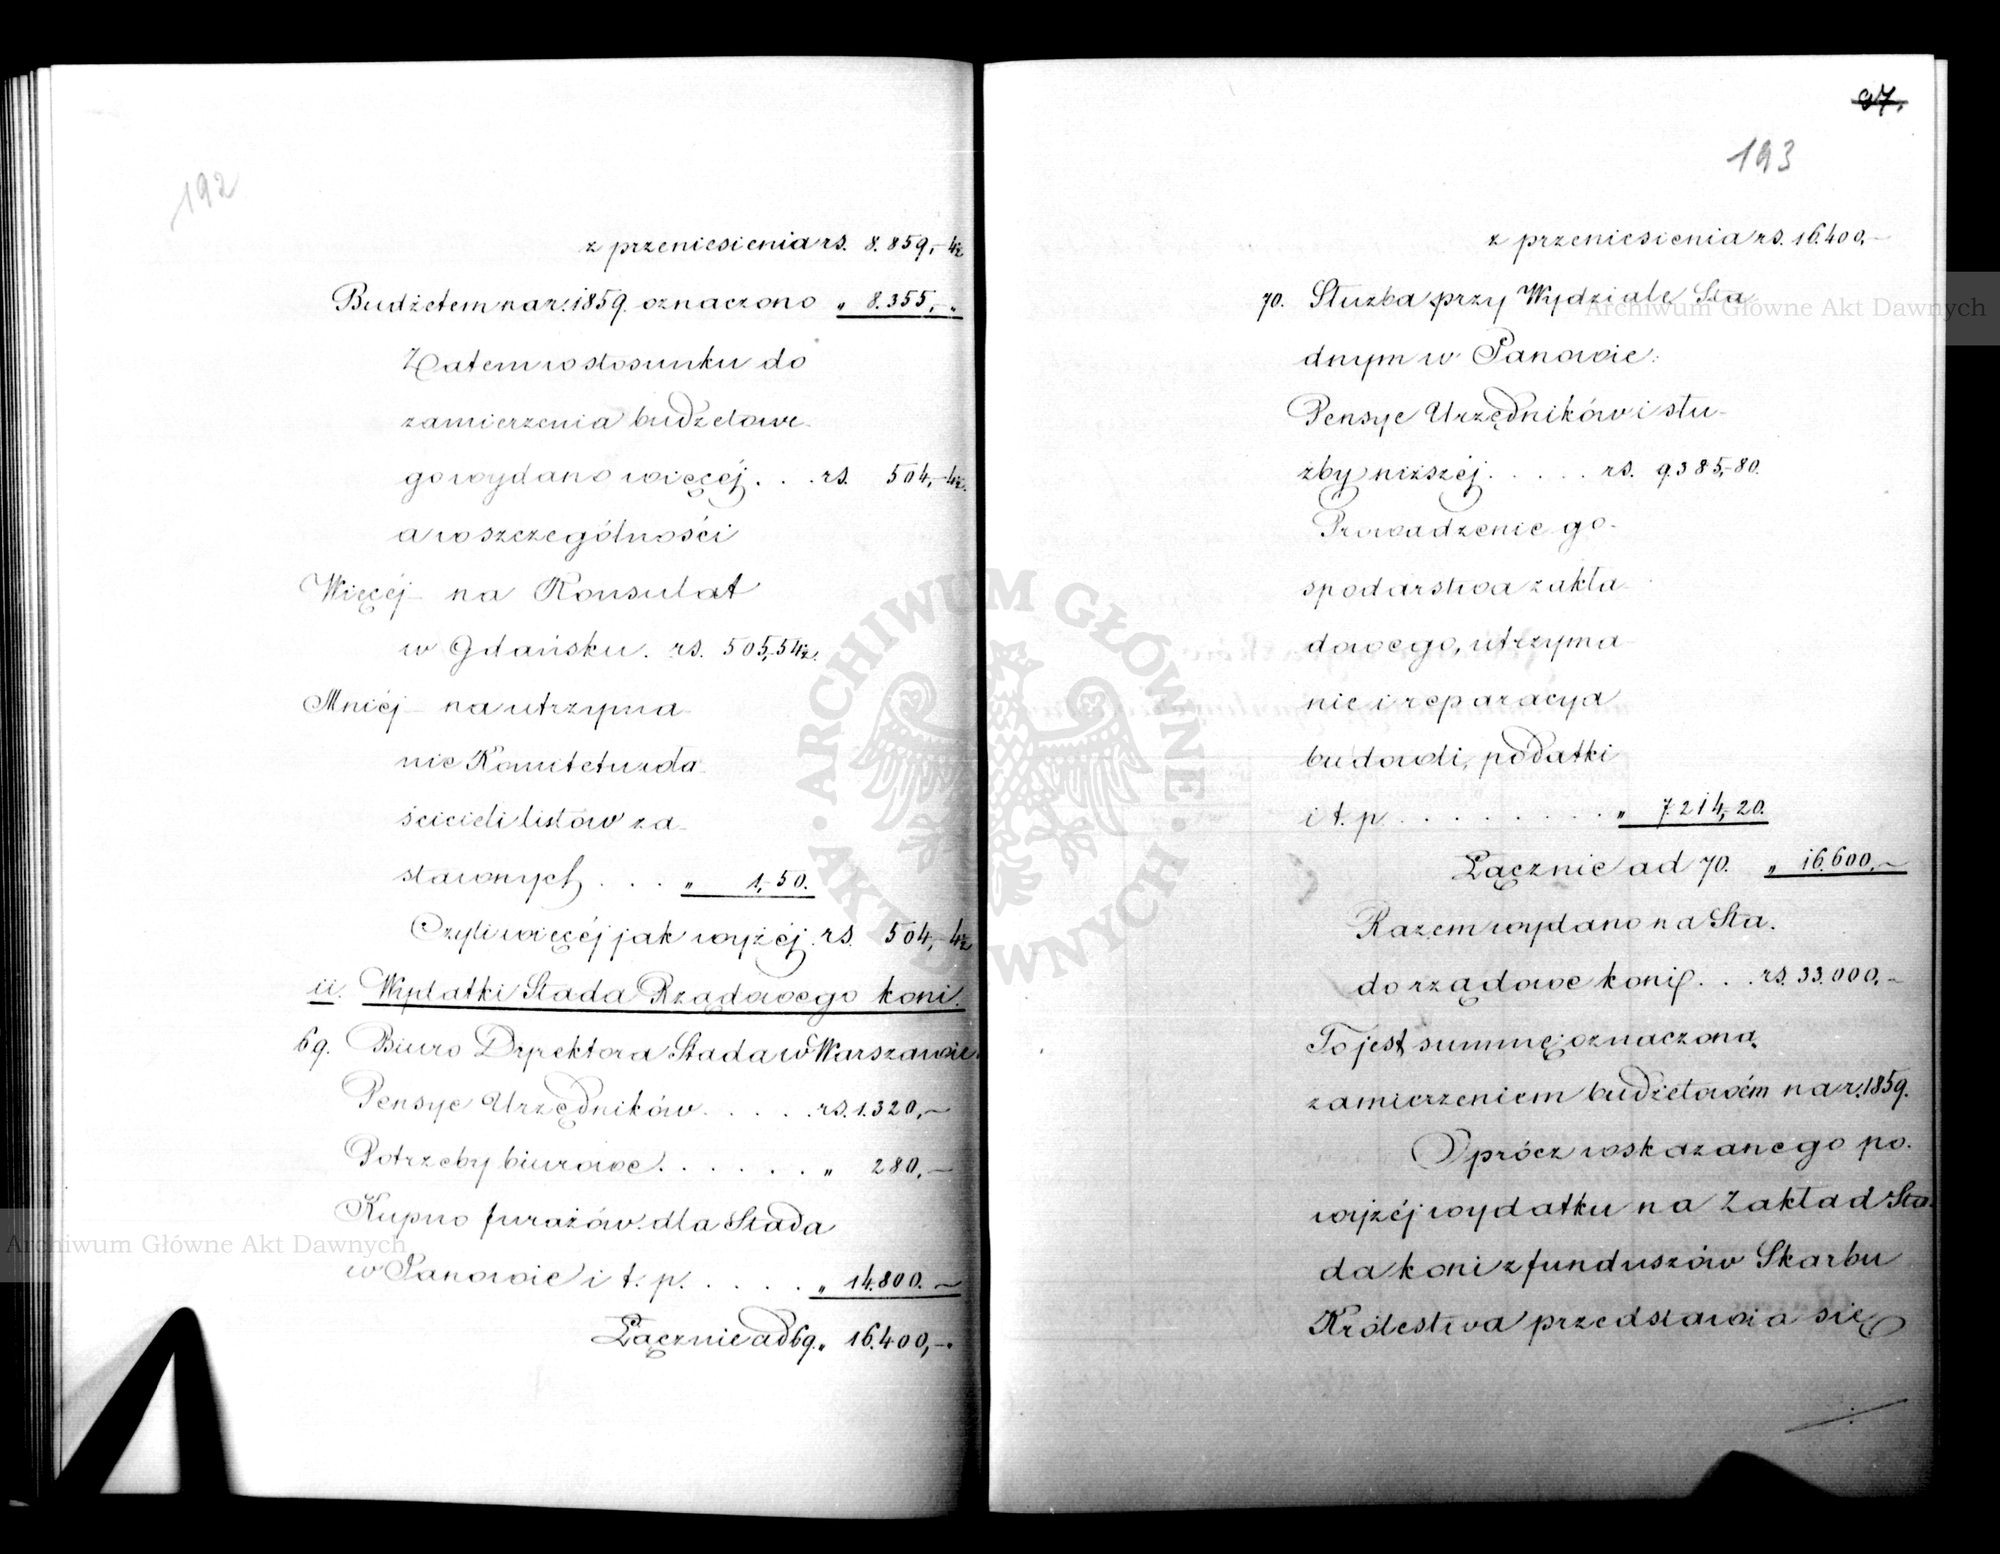 192
z przeniesienia rs. 8.859,-4½
Budżetem na r. 1859. oznaczono „ 8.355,- „
Zatem w stosunku do
zamierzenia budżetowe-
go wydano więcéj . . . rs. 504,-4½.
a w szczególności
Więcéj – na Konsulat
w Gdańsku. rs. 505,54½.
Mniéj – na utrzyma-
nie Komitetu wła-
ścicieli listów za-
stawnych . . . „ 1,-50.
Czyli więcéj jak wyżéj. rs. 504,-4½
11. Wydatki Stada Rządowego koni.
69. Biuro Dyrektora Stada w Warszawie.
Pensye Urzędników . . . . . rs. 1.320,-
Potrzeby biurowe . . . . . . „ 280,-
Kupno furażów dla Stada
w Janowie i t. p. . . . . . „ 14.800.-
Łącznie ad 69. „ 16.400,-.
97.
193
z przeniesienia rs. 16.400,-
70. Służba przy Wydziale Sta-
dnym w Janowie:
Pensye Urzędników i słu-
żby niższéj . . . . . rs. 9.385,-80.
Prowadzenie go-
spodarstwa zakła-
dowego, utrzyma-
nie i reparacya
budowli, podatki
i t. p. . . . . . . . . „ 7.214,-20.
Łącznie ad 70. „ 16.600,-
Razem wydano na Sta-
do rządowe koni . . . rs. 33.000,-
To jest summę oznaczoną
zamierzeniem budżetowém na r. 1859.
Oprócz wskazanego po-
wyżéj wydatku na Zakład Sta-
da koni z funduszów Skarbu
Królestwa przedstawia się
ARCHIWUM GŁÓWNE · AKT DAWNYCH ·
Archiwum Główne Akt Dawnych
Archiwum Główne Akt Dawnych